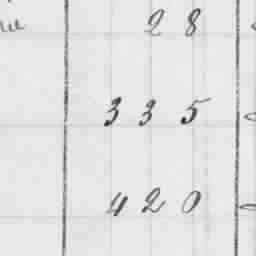 28
335
420